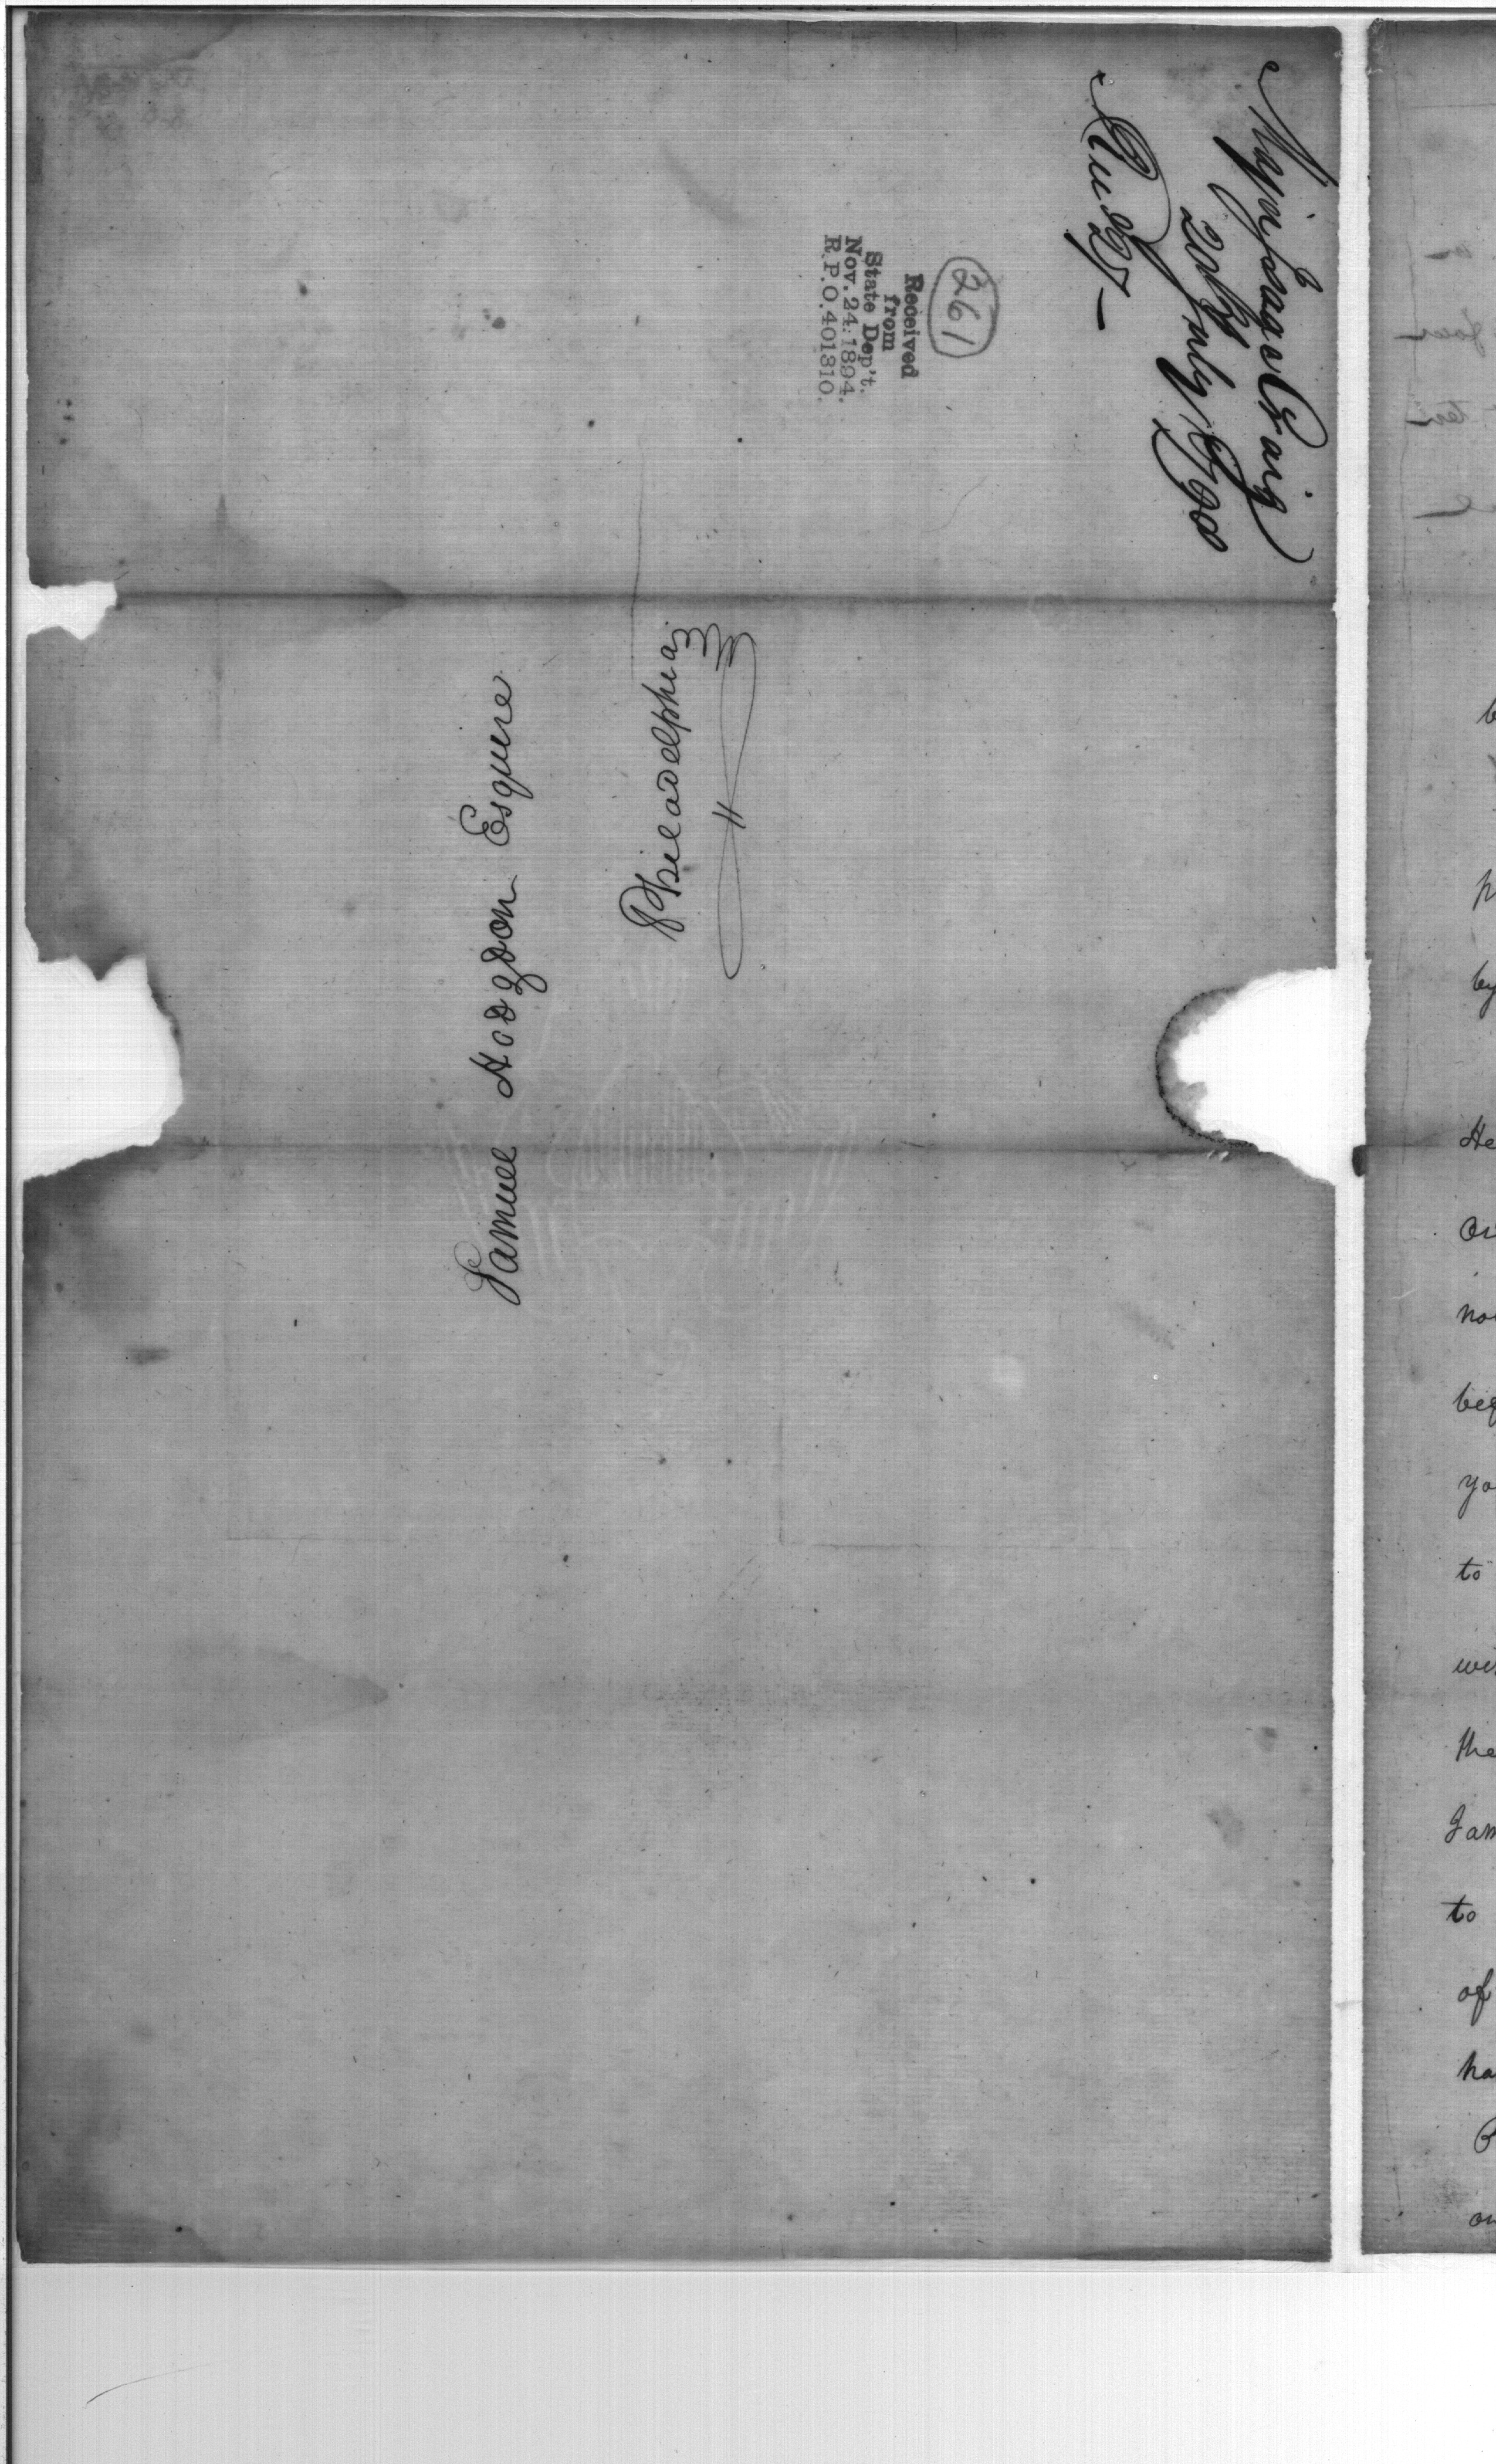 Major Isaac Craig
20th July 1790
261
Received
from
State Dep't.
Nov. 24. 1894.
R.P.O. 401310.
Samuel Hodgdon Esquire
Philadelphia
b
p
by
He
on
no
beg
yo
to
wi
the
Jam
to
of
ha
on